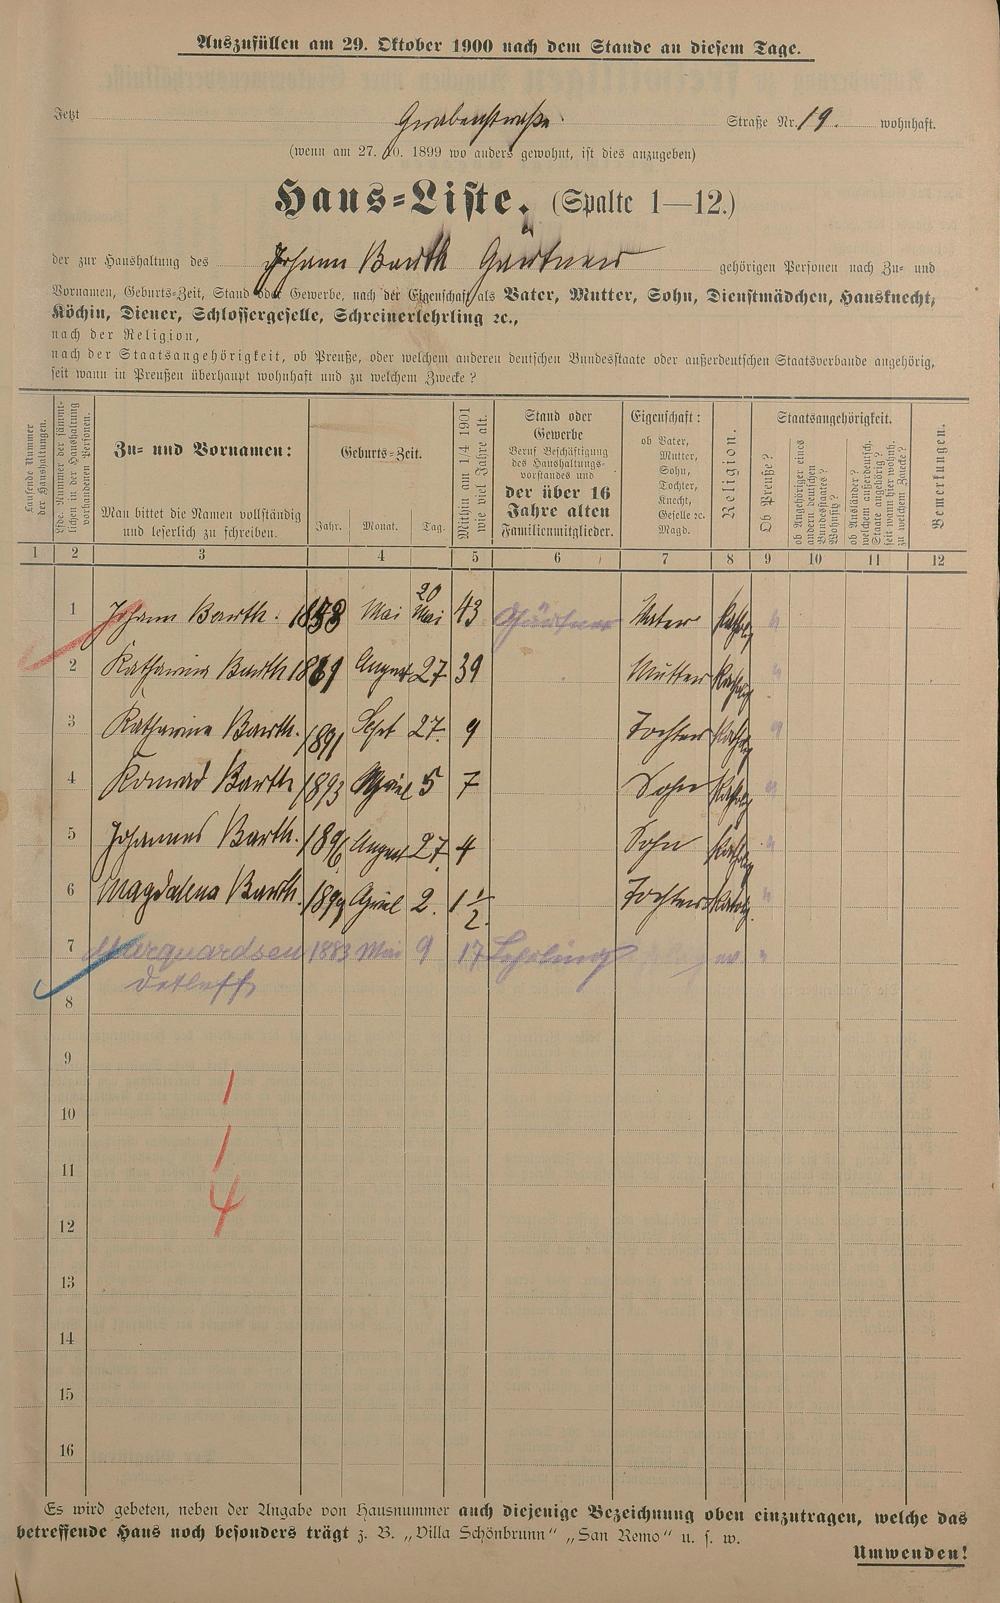 Auszufüllen am 29. Oktober 1900 nach dem Stande an diesem Tage.
Jetzt Grabenstraße Straße Nr. 19. wohnhaft.
(wenn am 27. 10. 1899 wo anders gewohnt, ist dies anzugeben)
Haus-Liste. (Spalte 1—12.)
der zur Haushaltung des Johann Barth Gärtner gehörigen Personen nach Zu- und
Vornamen, Geburts-Zeit, Stand oder Gewerbe, nach der Eigenschaft als Vater, Mutter, Sohn, Dienstmädchen, Hausknecht,
Köchin, Diener, Schlossergeselle, Schreinerlehrling ꝛc.,
nach der Religion,
nach der Staatsangehörigkeit, ob Preuße, oder welchem anderen deutschen Bundesstaate oder außerdeutschen Staatsverbande angehörig,
seit wann in Preußen überhaupt wohnhaft und zu welchem Zwecke?
Laufende Nummer der Haushaltungen.
Lfde. Nummer der sämmtlichen in der Haushaltung vorhandenen Personen.
Zu- und Vornamen:
Man bittet die Namen vollständig
und leserlich zu schreiben.
Geburts-Zeit.
Jahr. Monat. Tag.
Mithin am 1/4 1901 wie viel Jahre alt.
Stand oder
Gewerbe
Beruf Beschäftigung
des Haushaltungs-
vorstandes und
der über 16
Jahre alten
Familienmitglieder.
Eigenschaft:
ob Vater,
Mutter,
Sohn,
Tochter,
Knecht,
Geselle ꝛc.
Magd.
Religion.
Staatsangehörigkeit.
Ob Preuße?
ob Angehöriger eines andern deutschen Bundesstaates? Wohnsitz?
ob Ausländer? welchem außerdeutsch. Staate angehörig? seit wann hier wohnh. zu welchem Zwecke?
Bemerkungen.
1 2 3 4 5 6 7 8 9 10 11 12
1 Johann Barth. 1858 Mai 20 Mai 43 Gärtner Vater Kathol. "
2 Katharina Barth 1861 August 27 39 Mutter Kathol. "
3 Katharina Barth. 1891 Sept 27. 9 Tochter Kathol. "
4 Konrad Barth 1893 April 5 7 Sohn Kathol. "
5 Johannes Barth. 1896 August 27. 4 Sohn Kathol. "
6 Magdalena Barth. 1899 April 2. 1 1/2 Tochter Kathol. "
7 Marquardsen 1883 Mai 9 17 Lehrling ev. "
Detleff
8
9
1
10
1
11
4
12
13
14
15
16
Es wird gebeten, neben der Angabe von Hausnummer auch diejenige Bezeichnung oben einzutragen, welche das
betreffende Haus noch besonders trägt z. B. „Villa Schönbrunn" „San Remo" u. s. w.
Umwenden!